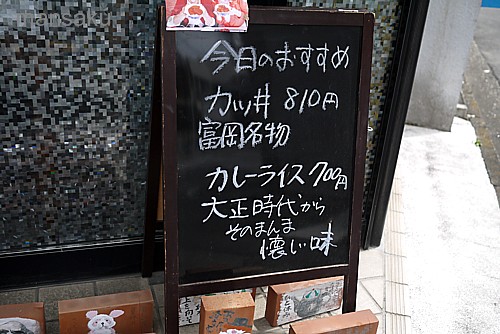 mansaku
今日のおすすめ
カツ丼 810円
富岡名物
カレーライス 700円
大正時代から
そのまんま
懐しい味